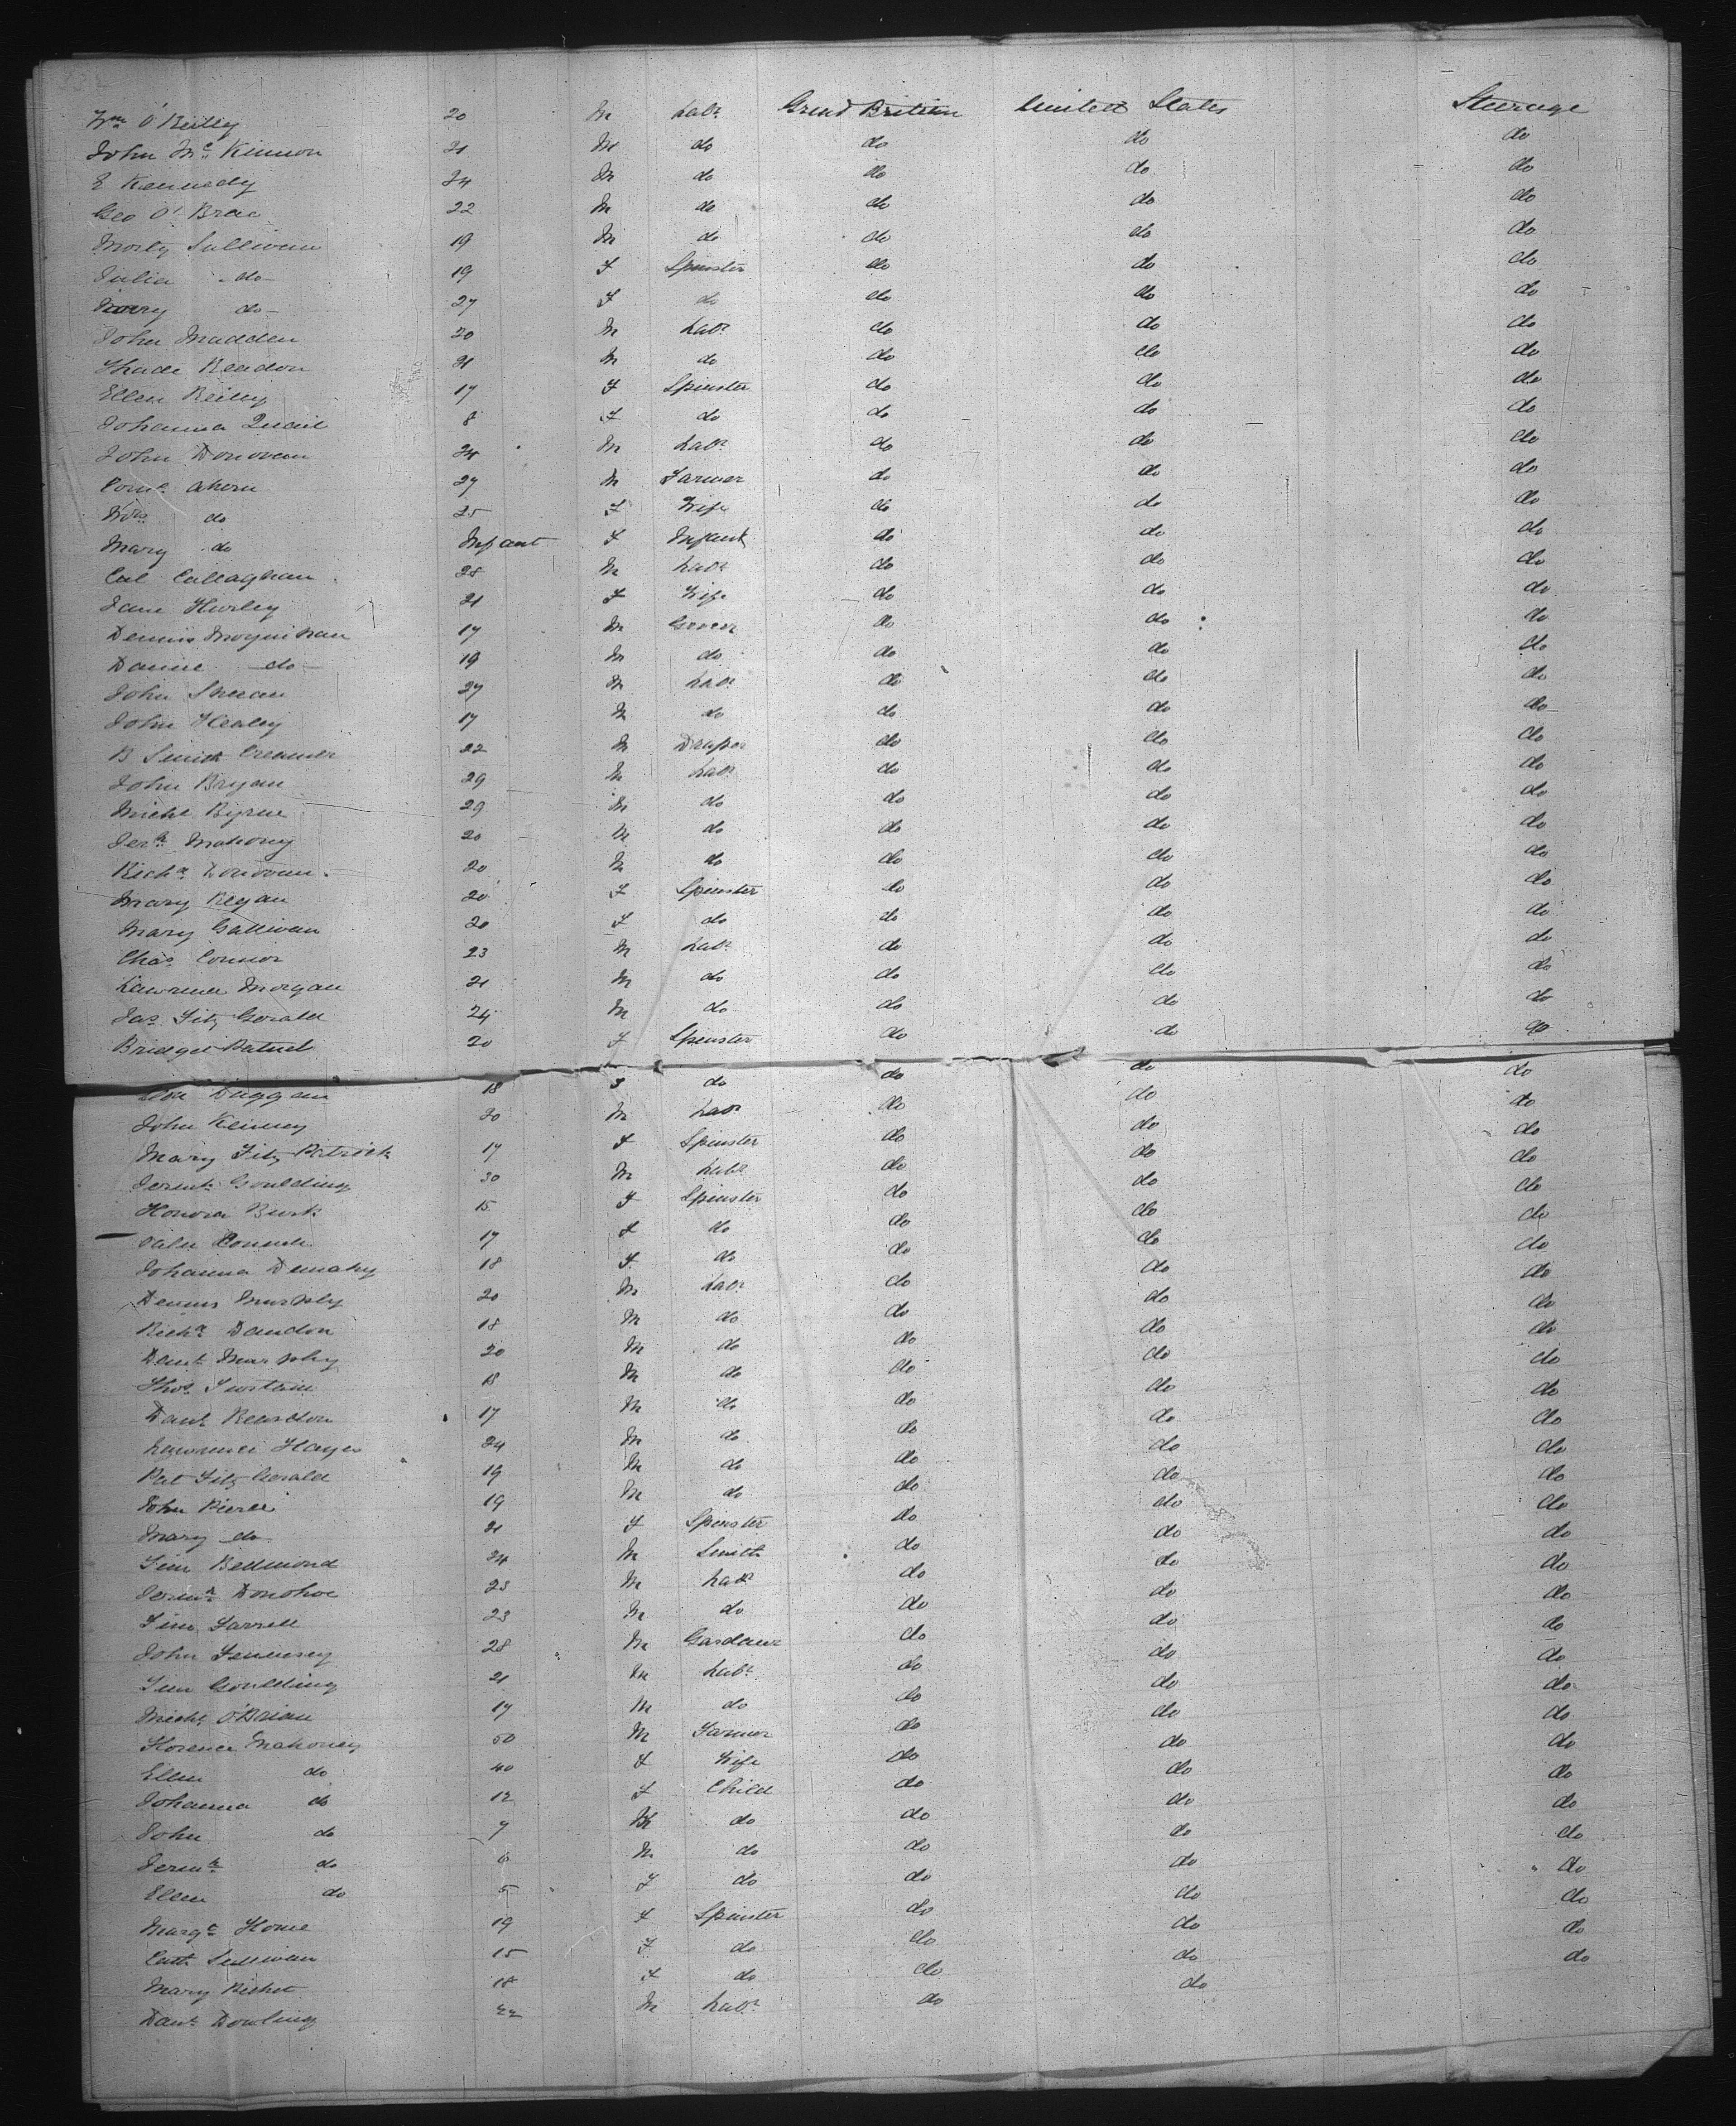 Wm O'Reilly 20 M Labr Great Britian United States Steerage
John Mc Kinnon 21 M do do do do
E Kennedy 24 M do do do do
Geo O' Brae 22 M do do do do
Morty Sullivan 19 M do do do do
Julia do 19 F Spinster do do do
Mary do 27 F do do do do
John Madden 20 M Labr do do do
Thade Readon 21 M do do do do
Ellen Reilly 17 F Spinster do do do
Johanna Quail 8 F do do do do
John Donovan 24 M Labr do do do
Corns Ahern 27 M Farmer do do do
do 25 F Wife do do do
Mary do Infant F Infant do do do
Cal Callaghan 28 M Labr do do do
Jane Hurley 21 F Wife do do do
Dennis Moynihan 17 M Grocer do do do
Dannie do 19 M do do do do
John Sheean 27 M Labr do do do
John Healey 17 M do do do do
B Smith Creamer 22 M Draper do do do
John Bryan 29 M Labr do do do
Michl Byrne 29 M do do do do
Jerh Mahony 20 M do do do do
Richd Donovan 20 M do do do do
Mary Regan 20 F Spinster do do do
Mary Gallivan 20 F do do do do
Chas Connor 23 M Labr do do do
Lawrence Morgan 21 M do do do do
Jas Fitz Gerald 24 M do do do do
Bridget 20 F Spinster do do do
Duggan 18 F do do do do
John Kenney 20 M Labr do do do
Mary Fitz Patrick 17 F Spinster do do do
Jermh Goulding 30 M Labr do do do
Honora Burk 15 F Spinster do do do
17 F do do do do
Johanna Demahy 18 F do do do do
Dennis Murphy 20 M Labr do do do
Richd Dandon 18 M do do do do
Danl Murphy 20 M do do do do
Thos 18 M do do do do
Danl Reardon 17 M do do do do
Lawrence Hayes 24 M do do do do
Pat Fitz Gerald 19 M do do do do
John Pierce 19 M do do do do
Mary do 21 F Spinster do do do
Tim Redmond 24 M Smith do do do
Jermh Donohoe 23 M Labr do do do
Tim Farrell 23 M do do do do
John Fennesey 28 M Gardener do do do
Tim Goulding 21 M Labr do do do
Michl O'Brian 17 M do do do do
Florence Mahoney 50 M Farmer do do do
Ellen do 40 F Wife do do do
Johanna do 12 F Child do do do
John do 7 M do do do do
Jermh do 6 M do do do do
Ellen do 5 F do do do do
Margt Howe 19 F Spinster do do do
Cath Sullivan 15 F do do do do
Mary 18 F do do do do
Danl Dowling 22 M Labr do do